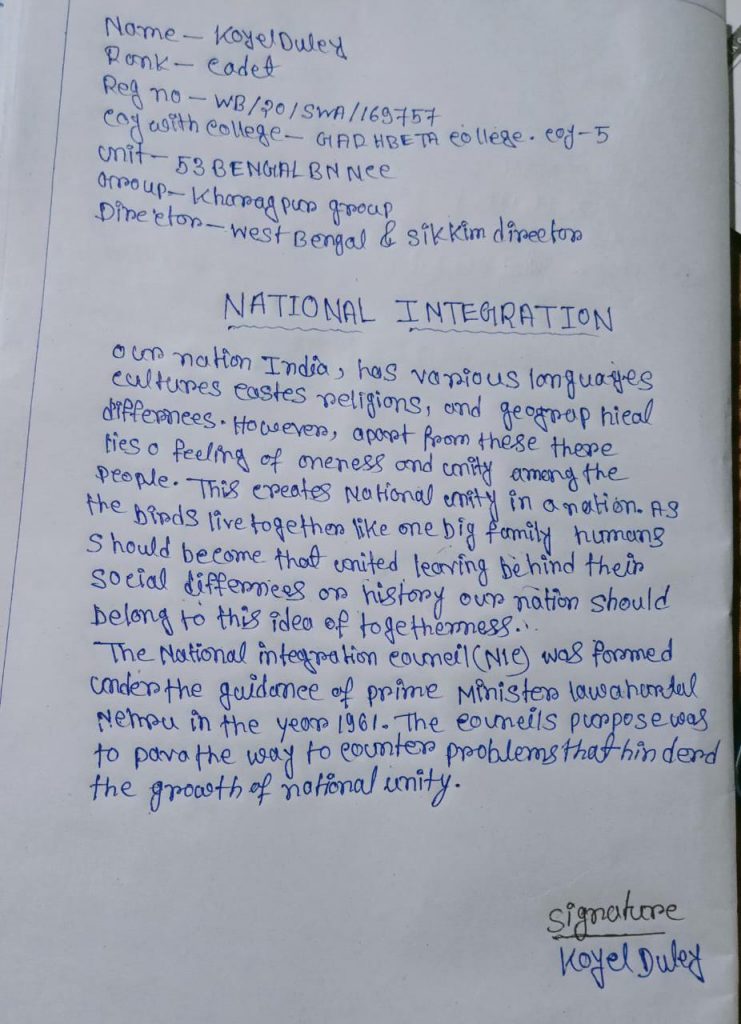 Name - Koyel Duley
Rank - cadet
Reg no - WB/20/SWA/169757
coy with college - GARHBETA college. coy-5
unit - 53 BENGAL BN Ncc
Group - Kharagpur group
Director - West Bengal & Sikkim director
NATIONAL INTEGRATION
our nation India, has various languages
cultures castes religions, and geograp hical
differnces. However, apart from these there
lies a feeling of oneness and unity among the
people. This creates National unity in a nation. As
the birds live together like one big family humans
should become that united leaving behind their
social differnces or history our nation should
belong to this idea of togetherness..
The National integration council (NIC) was formed
under the guidance of prime Minister Jawaharlal
Nehru in the year 1961. The councils purpose was
to pava the way to counter problems that hin derd
the growth of national unity.
signature
Koyel Duley